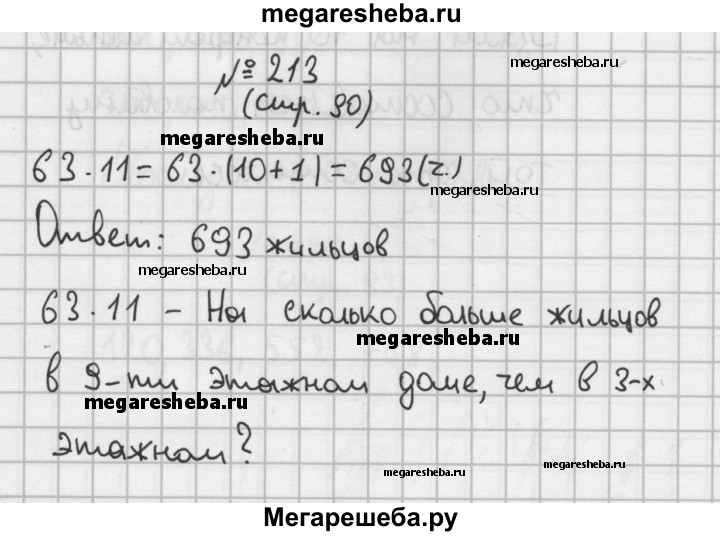 megaresheba.ru
№ 213
megaresheba.ru
(стр. 90)
megaresheba.ru
63 · 11 = 63 · (10 + 1) = 693 (ч.)
megaresheba.ru
Ответ: 693 жильцов
megaresheba.ru
63 · 11 - На сколько больше жильцов
megaresheba.ru
в 9-ти этажном доме, чем в 3-х
megaresheba.ru
этажном?
megaresheba.ru
megaresheba.ru
Мегарешеба.ру